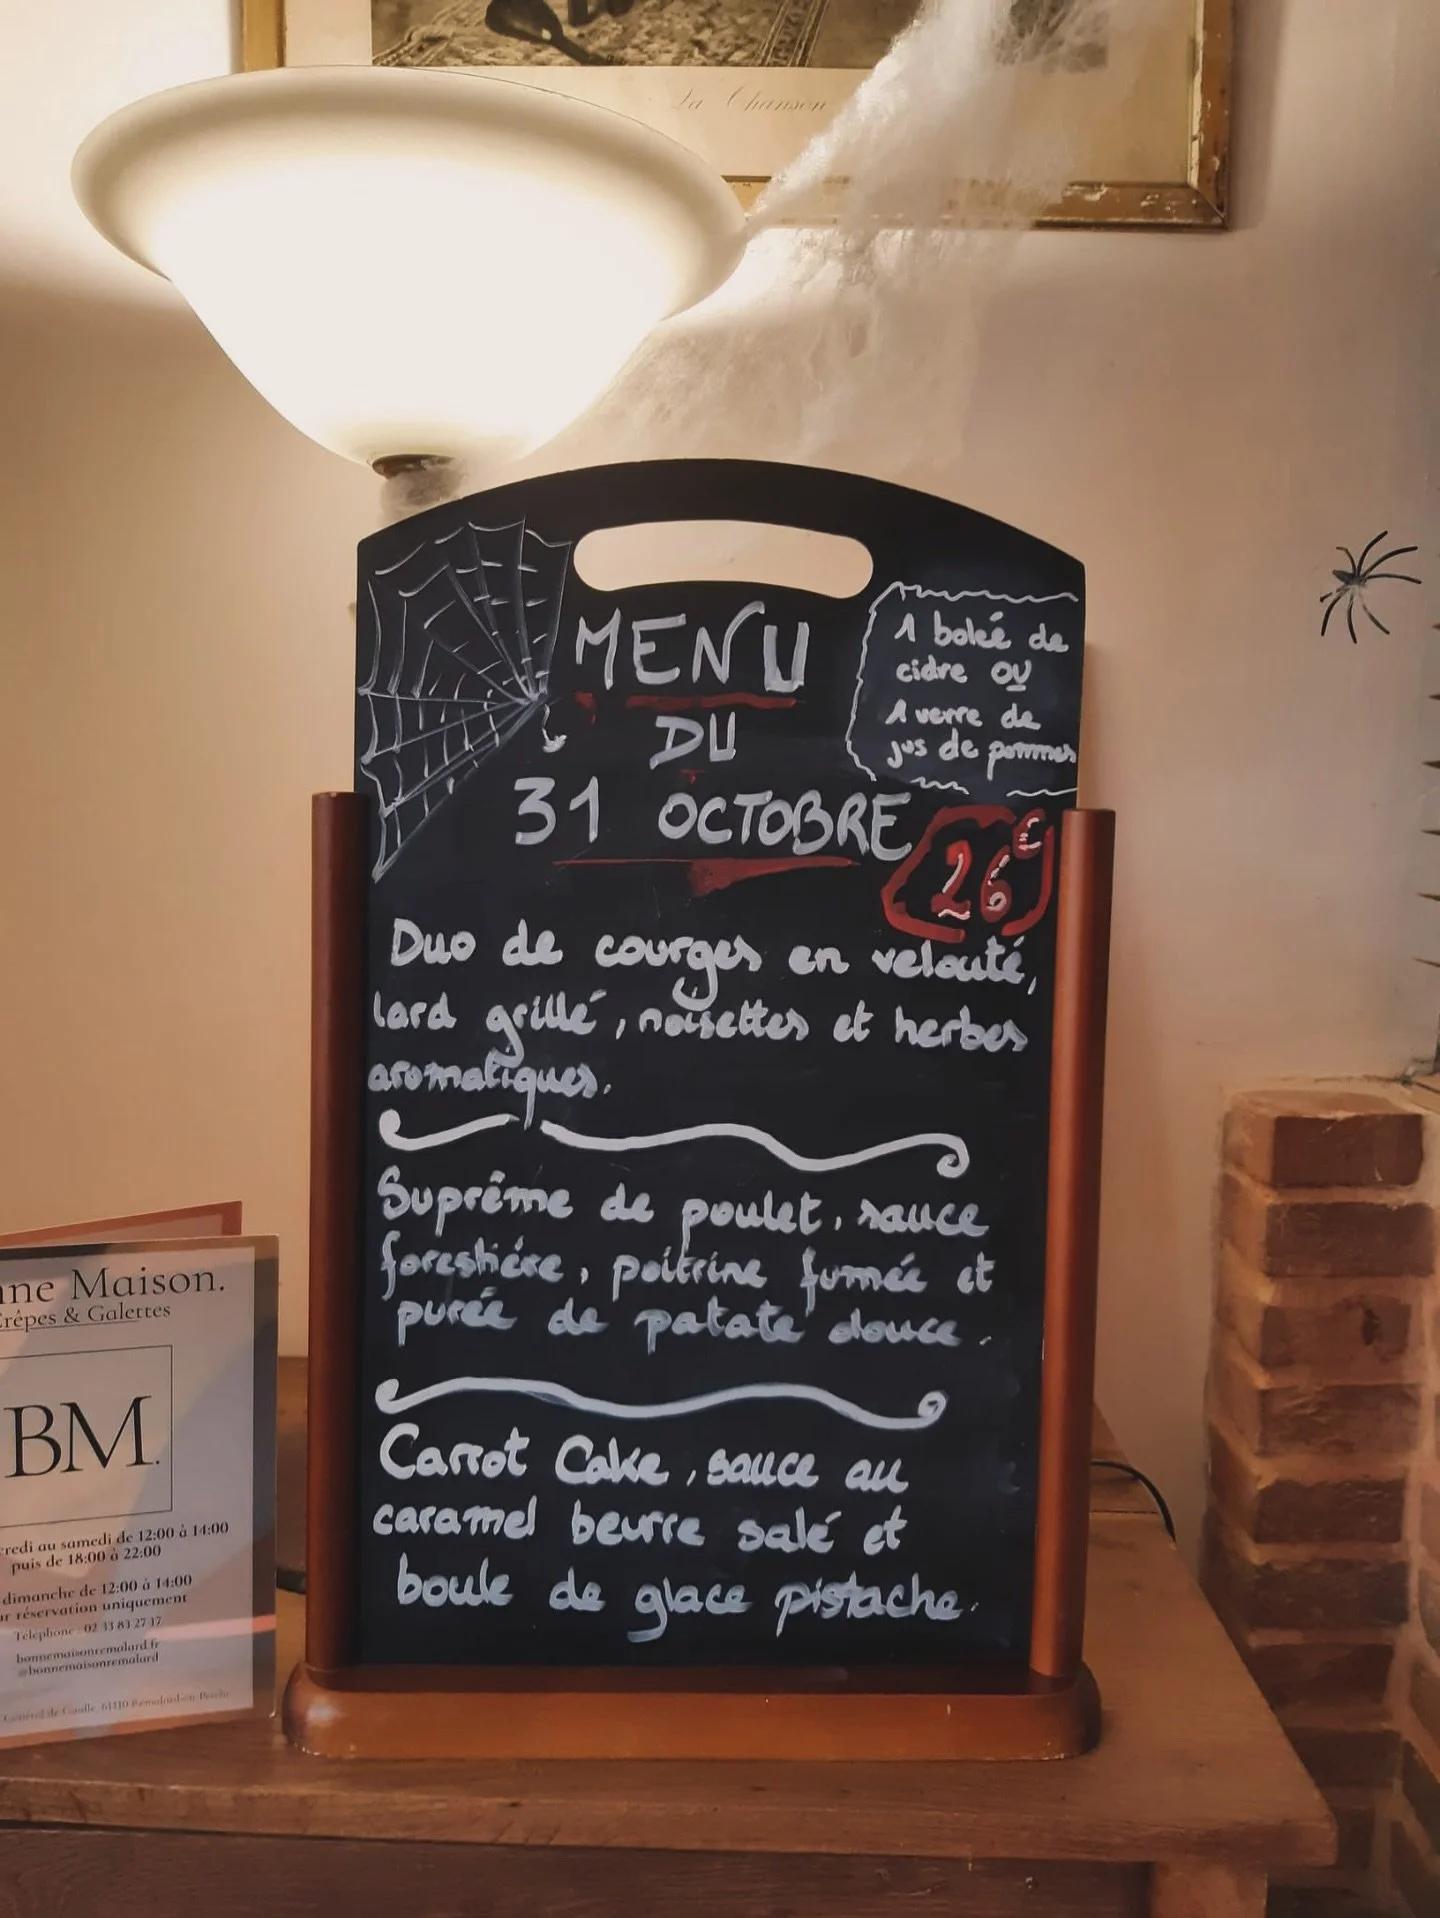 La Chanson
MENU
DU
31 OCTOBRE
1 bolée de
cidre OU
1 verre de
jus de pommes
26€
Duo de courges en velouté,
lard grillé, noisettes et herbes
aromatiques.
Suprême de poulet, sauce
forestière, poitrine fumée et
purée de patate douce.
Carrot Cake, sauce au
caramel beurre salé et
boule de glace pistache.
nne Maison.
Crêpes & Galettes
BM.
redi au samedi de 12:00 à 14:00
puis de 18:00 à 22:00
dimanche de 12:00 à 14:00
ur réservation uniquement
Téléphone : 02 33 83 27 17
bonnemaisonremalard.fr
@bonnemaisonremalard
Général de Gaulle, 61110 Rémalard-en-Perche